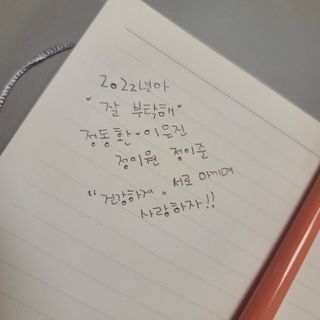 2022년아
"잘 부탁해"
정동환·이응진
정이원 정이준
"건강하게" 서로 아끼며
사랑하자!!